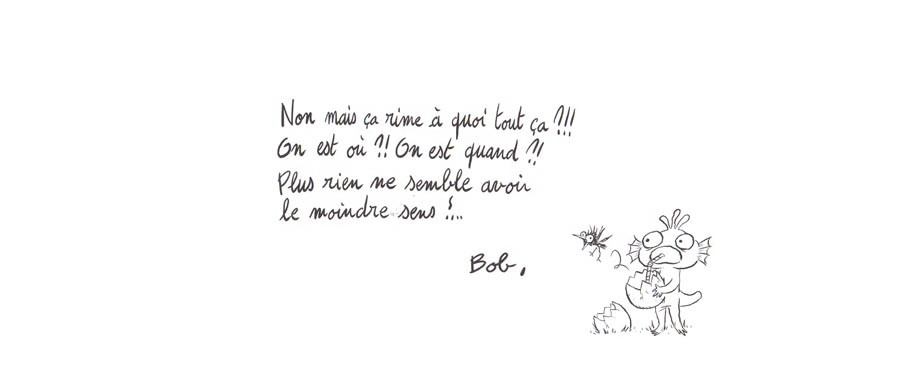 Non mais ça rime à quoi tout ça ?!!!
On est où ?!! On est quand ?!!
Plus rien ne semble avoir
le moindre sens !...
Bob.